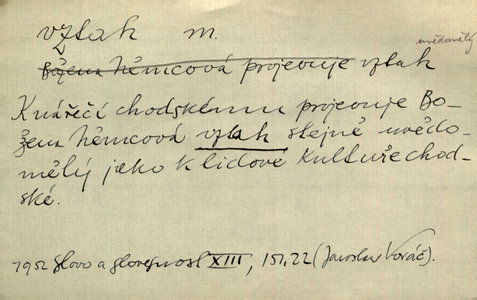 vztah m.
uvědomělý
Božena Němcová projevuje vztah
K nářečí chodskému projevuje Bo-
žena Němcová vztah stejně uvědo-
mělý jako k lidové kultuře chod-
ské.
1952 Slovo a slovesnost XIII, 151, 22 (Jaroslav Voráč).